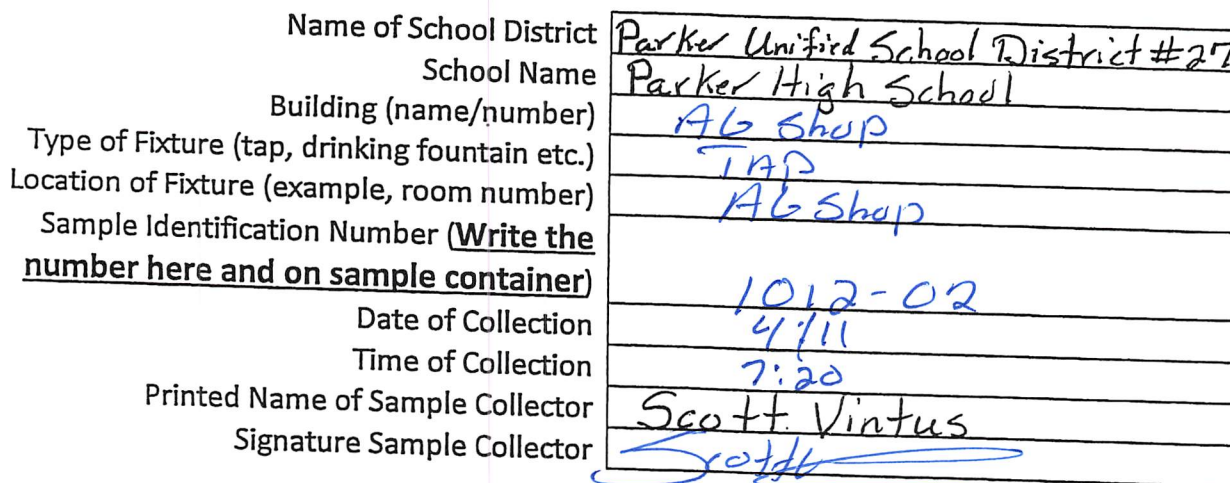 Name of School District Parker Unified School District #27
School Name Parker High School
Building (name/number) AG Shop
Type of Fixture (tap, drinking fountain etc.) TAP
Location of Fixture (example, room number) AG Shop
Sample Identification Number (Write the
number here and on sample container) 1012-02
Date of Collection 4/11
Time of Collection 7:20
Printed Name of Sample Collector Scott Vintus
Signature Sample Collector Scott